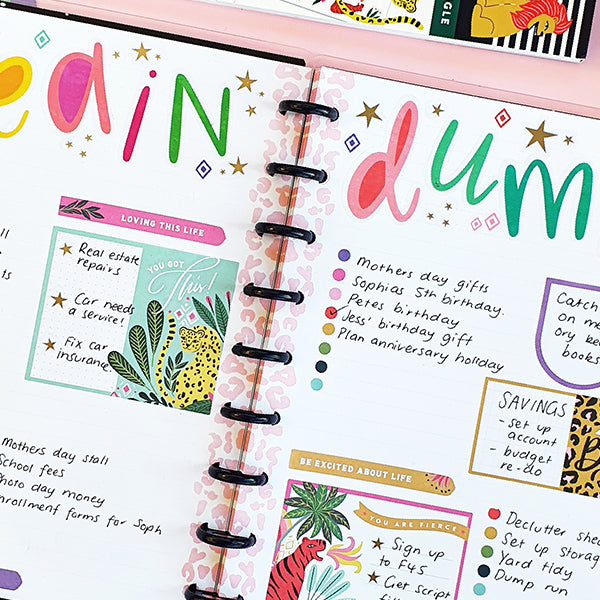 GLE
ain
dum
LOVING THIS LIFE
Real estate
repairs
Car needs
a service!
Fix car
insurance
YOU GOT
This!
Mothers day stall
School fees
Photo day money
Enrollment forms for Soph
Mothers day gifts
Sophias 5th birthday.
Petes birthday
Jess' birthday gift
Plan anniversary holiday
Catch
on me
ory ke
books
SAVINGS
- set up
account
- budget
re-do
BE EXCITED ABOUT LIFE
YOU ARE FIERCE
Sign up
to F45
Get script
Declutter shed
Set up storag
Yard tidy
Dump run